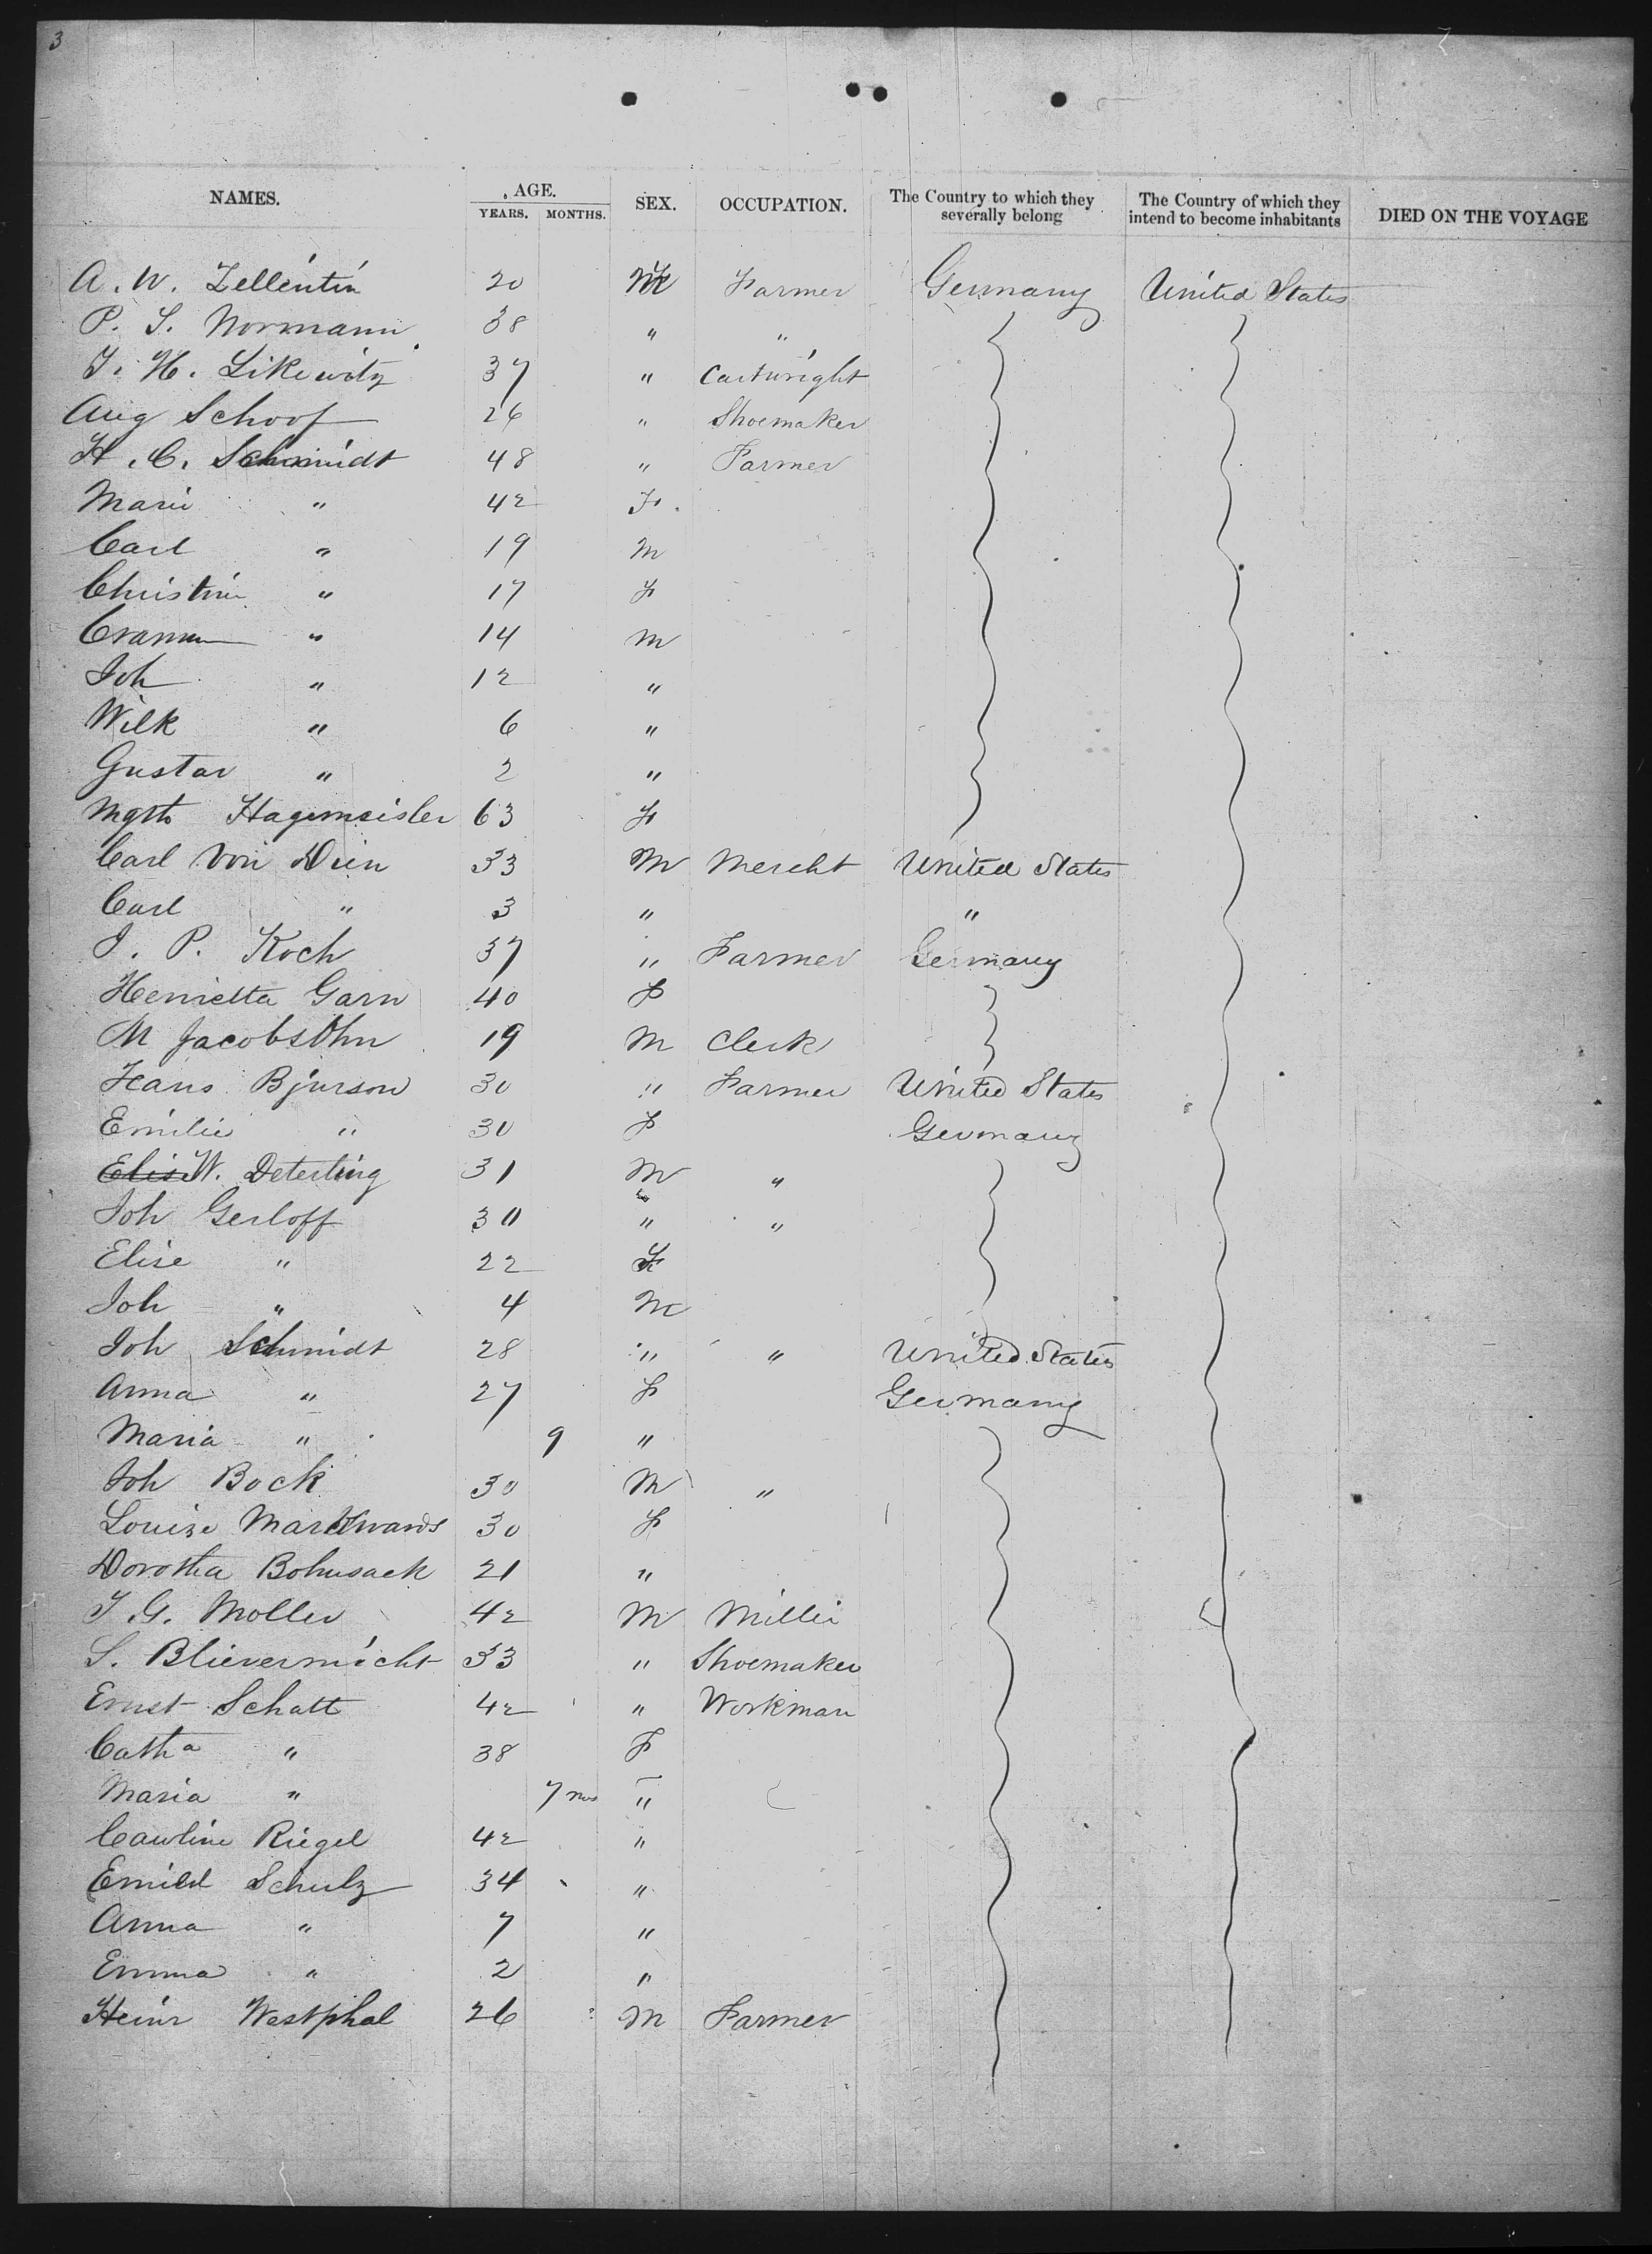 3
NAMES. AGE. SEX. OCCUPATION. The Country to which they severally belong The Country of which they intend to become inhabitants DIED ON THE VOYAGE
YEARS. MONTHS.
A. W. Zellentin 20 M Farmer Germany United States
P. S. Normann 38 " "
J. H. Likewitz 37 " Cartwright
Aug Schoof 26 " Shoemaker
H. C. Schmidt 48 " Farmer
Marie " 42 F.
Carl " 19 M
Christine " 17 F
" 14 M
Joh " 12 "
Wilk " 6 "
Gustav " 2 "
Mgth Hagemeister 63 F
Carl von Dien 33 M Mercht United States
Carl " 3 " "
J. P. Koch 37 " Farmer Germany
Henrietta Garn 40 F
M Jacobsohn 19 M Clerk
Hans Bjurson 30 " Farmer United States
Emilie " 30 F Germany
Elise W. Deterling 31 M "
Joh Gerloff 30 " "
Elise " 22 F
Joh " 4 M
Joh Schmidt 28 " " United States
Anna " 27 F Germany
Maria " 9 "
Joh Bock 30 M "
Louise 30 F
Dorothea Bohnsack 21 "
J. G. Moller 42 M Miller
S. Blievernicht 33 " Shoemaker
Ernst Schatt 42 " Workman
Catha " 38 F
Maria " 7 mos "
Caroline Riegel 42 "
Schulz 34 "
Anna " 7 "
Emma " 2 "
Heinr Westphal 26 M Farmer